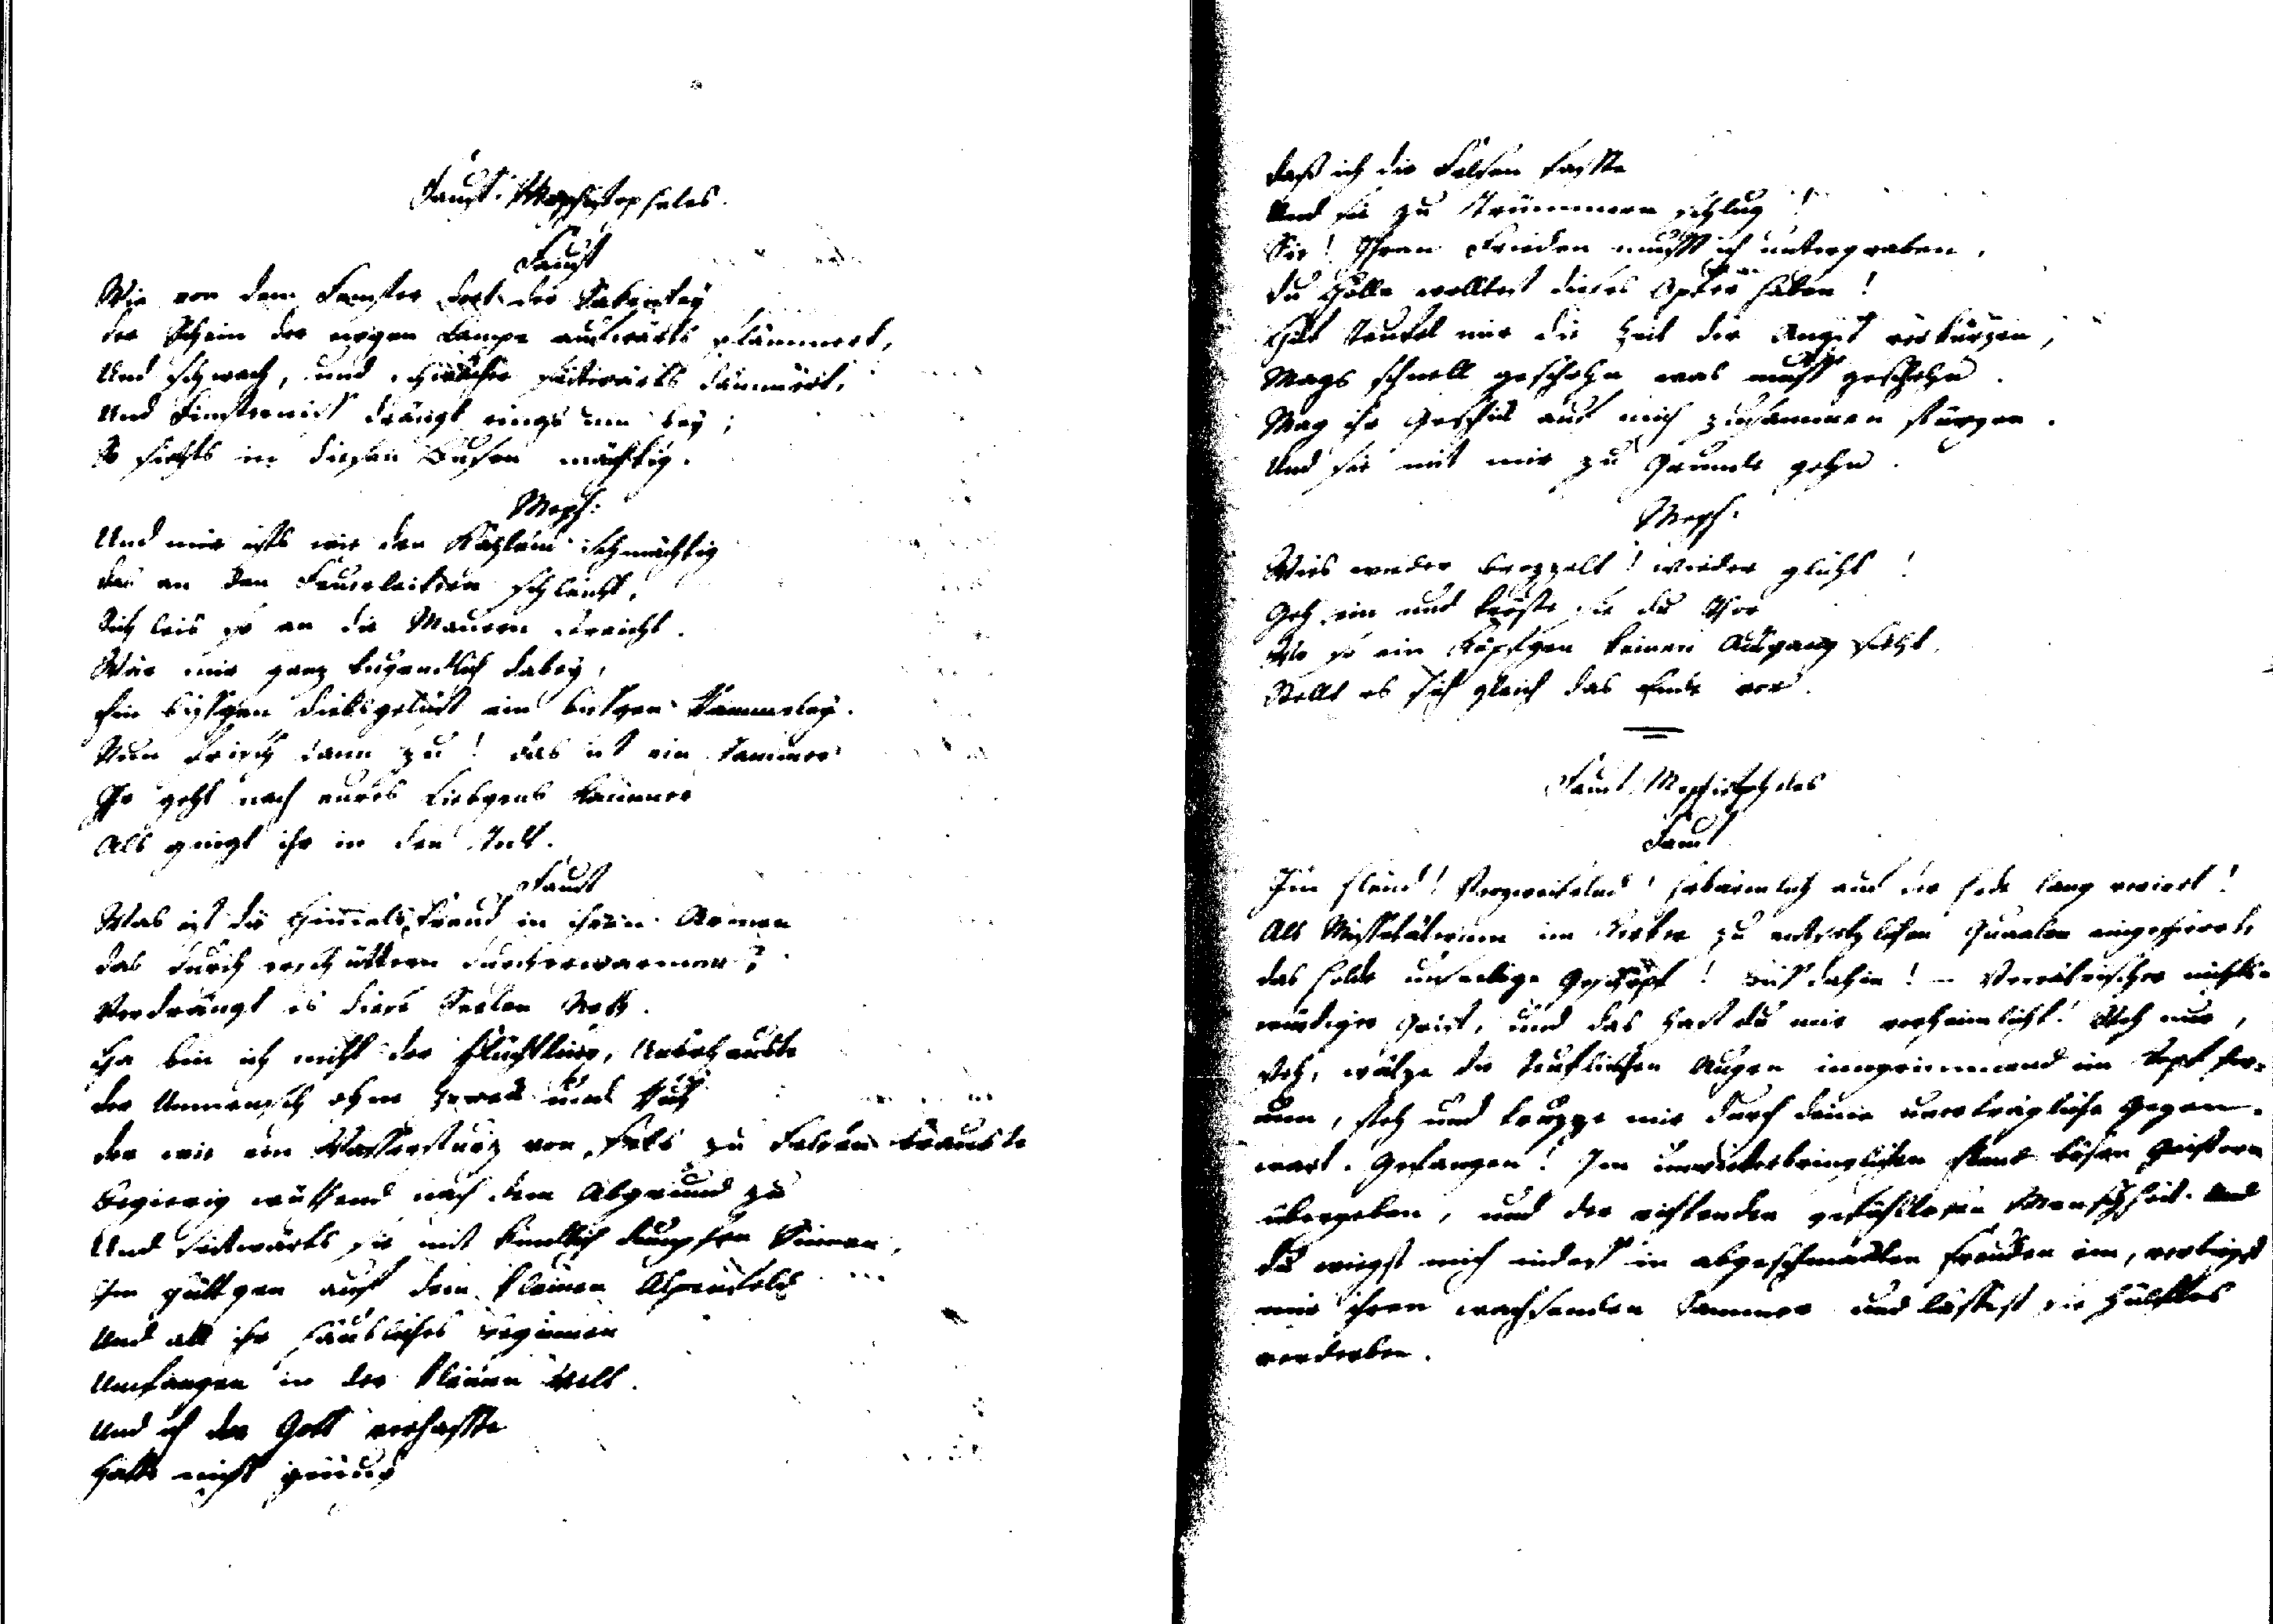 Faust. Mephistopheles.
Faust
Wie von dem Fenster dort der Sakristey
der Schein der ewgen Lampe aufwärts flämmert,
Und schwach, und schwächer seitwärts dämmert,
Und Finsterniss drängt rings um bey;
So siehts in diesem Busen nächtig.
Meph:
Und mir ists wie dem Käzlein schmächtig
das an den Feuerleitern schleicht,
Sich leis so an die Mauern streicht.
Wär mir ganz tugendlich dabey,
Ein bissgen Diebsgelüst ein bissgen Rammeley.
Nun frisch dann zu! das ist ein Jammer
Ihr geht nach eures Liebgens Kammer
Als gingt ihr in den Todt.
Faust
Was ist die Himmels freud in ihren Armen
das durch erschüttern durcherwarmen?
Verdrängt es diese Seelen Noth.
Ha bin ich nicht der Flüchtling, Unbehauste
der Unmensch ohne Zweck und Ruh
der wie ein Wassersturz von Fels zu Felsen brauste
Begierig wüthend nach dem Abgrund zu
Und seitwärts sie mit kindlich dumpfen Sinnen,
Im Hüttgen auf dem kleinen Alpenfeld
Und all ihr häusliches Beginnen
Umfangen in der kleinen Welt.
Und ich der Gott verhasste
Hatte nicht genug
daß ich die Felsen fasste
Und sie zu Trümmern schlug!
Sie! Ihren Frieden musst ich untergraben,
du Hölle wolltest dieses Opfer haben!
Hilf Teufel mir die Zeit der Angst verkürzen,
Mags schnell geschehn was muss geschehn.
Mag ihr Geschick auf mich zusammen stürzen.
Und sie mit mir zu Grunde gehn.
Meph:
Wies wieder brozzelt! wieder glüht!
Geh ein und tröste sie du Thor
Wo so ein Köpfgen keinen Ausgang sieht,
Stellt es sich gleich das Ende vor.
Faust. Mephistopheles
Faust
Im Elend! Verzweifelnd! Erbärmlich auf der Erde lang verirrt!
Als Missetäterinn im Kerker zu entsetzlichen Quaalen eingesperrt,
das holde unseelige Geschöpf! Biss dahin! – Verrätrischer nichts-
würdiger Geist, und das hast du mir verheimlicht! Steh nur,
steh, wälze die Teuflischen Augen inngrimmend im Kopf her-
um, steh und truzze mir durch deine unerträgliche Gegen-
wart. Gefangen! Im unwiederbringlichen Elend bösen Geistern
übergeben, und der richtenden gefühllosen Menschheit. Und
du wiegst mich indess in abgeschmackten Freuden ein, verbirgst
mir ihren wachsenden Jammer und lässest sie hülflos
verderben.